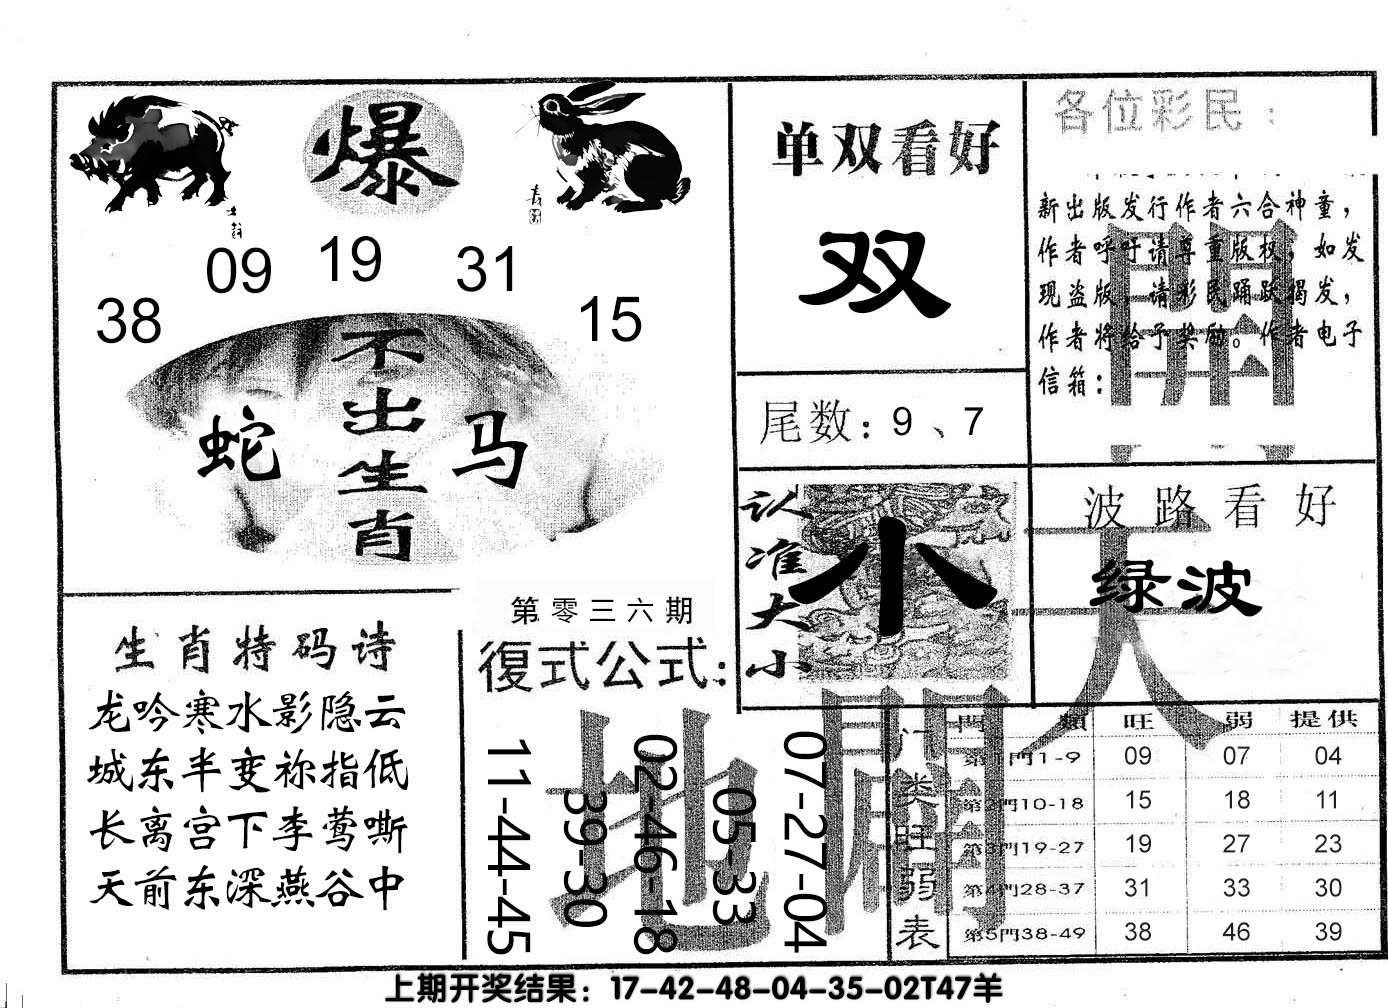 爆
09 19 31
38 15
不出生肖
蛇 马
单双看好
双
尾数：9、7
各位彩民：
新出版发行作者六合神童，
作者呼吁请尊重版权，如发
现盗版，请彩民踊跃揭发，
作者将给予奖励。作者电子
信箱：
開
认准大小
小
波路看好
绿波
天
生肖特码诗
龙吟寒水影隐云
城东半变祢指低
长离宫下李莺嘶
天前东深燕谷中
第零三六期
復式公式：
11-44-45
39-30
02-46-18
05-33
07-27-04
地
門类旺弱表
門類 旺 弱 提供
第1門1-9 09 07 04
第2門10-18 15 18 11
第3門19-27 19 27 23
第4門28-37 31 33 30
第5門38-49 38 46 39
上期开奖结果：17-42-48-04-35-02T47羊